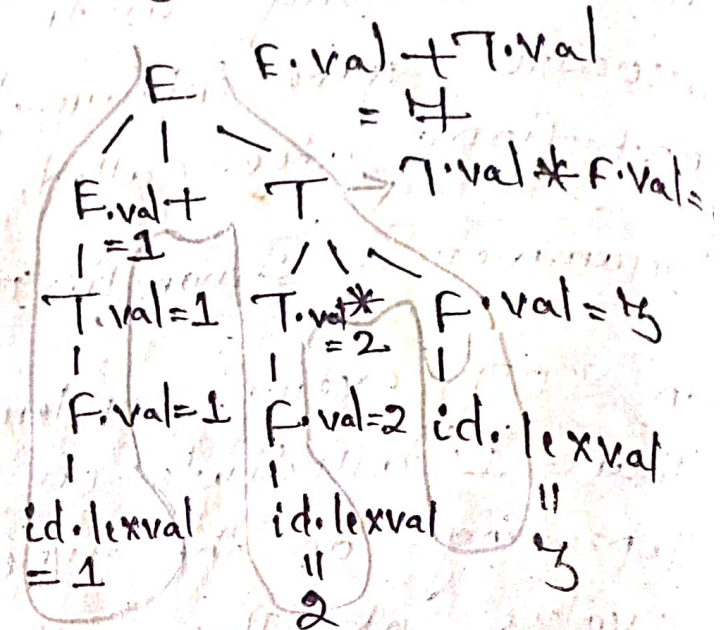 E E.val + T.val
= 7
E.val + T → T.val * F.val =
= 1
T.val=1 T.val * F.val = 3
= 2
F.val=1 F.val=2 id.lexval
id.lexval id.lexval =
= 1 = 3
2